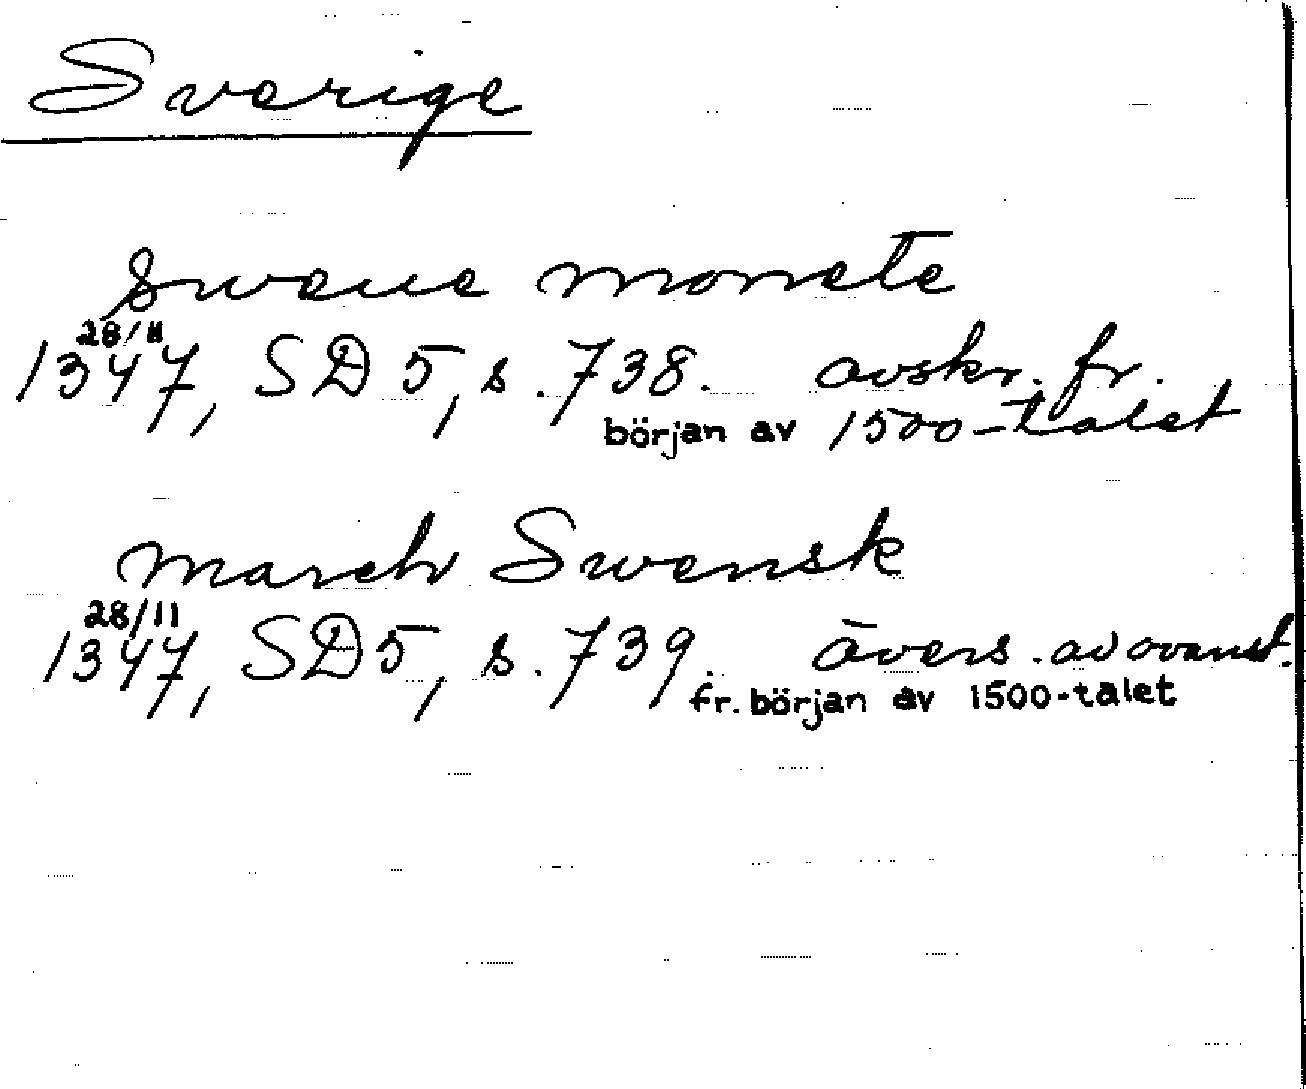 Sverige
Sweue monete
28/11
1347, SD 5, s. 738. avskr. fr.
början av 1500-talet
march Swensk
28/11
1347, SD 5, s. 739. övers. av ovanst.
fr. början av 1500-talet